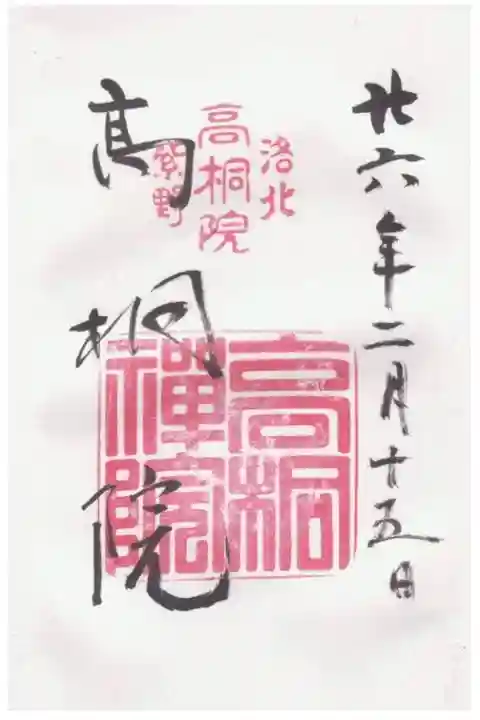 廿六年二月十五日
洛北
高桐院
紫野
髙桐院
高桐
禅院